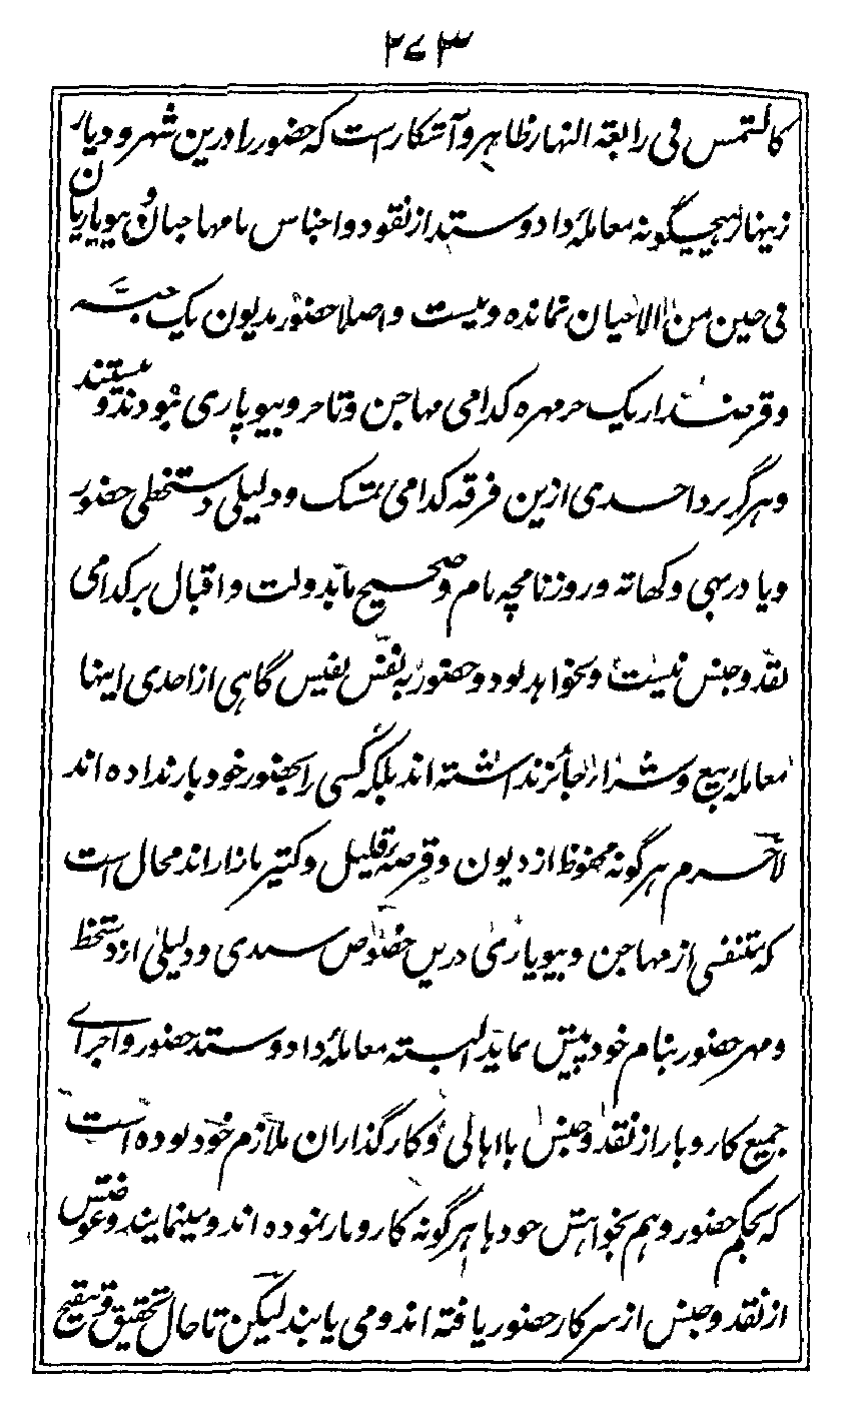 ۲۷۳
کالشمس فی رابعة النهار ظاهر و آشکار است که حضور را درین شهر و دیار
زینهار هیچگونه معاملهٔ داد و ستد از نقود و اجناس با مهاجنان و بیوپاریان
فی حین من الاحیان نمانده و نیست و اصلا حضور مدیون یک حبه
و قرضدار یک خرمهره کدامی مهاجن و تاجر و بیوپاری نبودند و نیستند
و هرگز برد احدی ازین فرقه کدامی تمسک و دلیلی دستخطی حضور
و یا در بهی و کهاته و روزنامچه نام و صحیح مابدولت و اقبال بر کدامی
نقد و جنس نیست و نخواهد بود و حضور به نفس نفیس گاهی از احدی اینها
معاملهٔ بیع و شرا را جائز نداشته اند بلکه کسی را بحضور خود بار نداده اند
لاجرم هرگونه محفوظ از دیون و قرضهٔ قلیل و کثیر بازار اند محال است
که متنفسی از مهاجن و بیوپاری درین خصوص سندی و دلیلی از دستخط
و مهر حضور بنام خود پیش نماید البته معاملهٔ داد و ستد حضور و اجرای
جمیع کاروبار از نقد و جنس با اهالی و کارگذاران ملازم خود بوده است
که بحکم حضور و هم بخواهش خودها هرگونه کاروبار نموده اند و مینمایند و عوضش
از نقد و جنس از سرکار حضور یافته اند و می یابند لیکن تا حال تحقیق و تنقیح